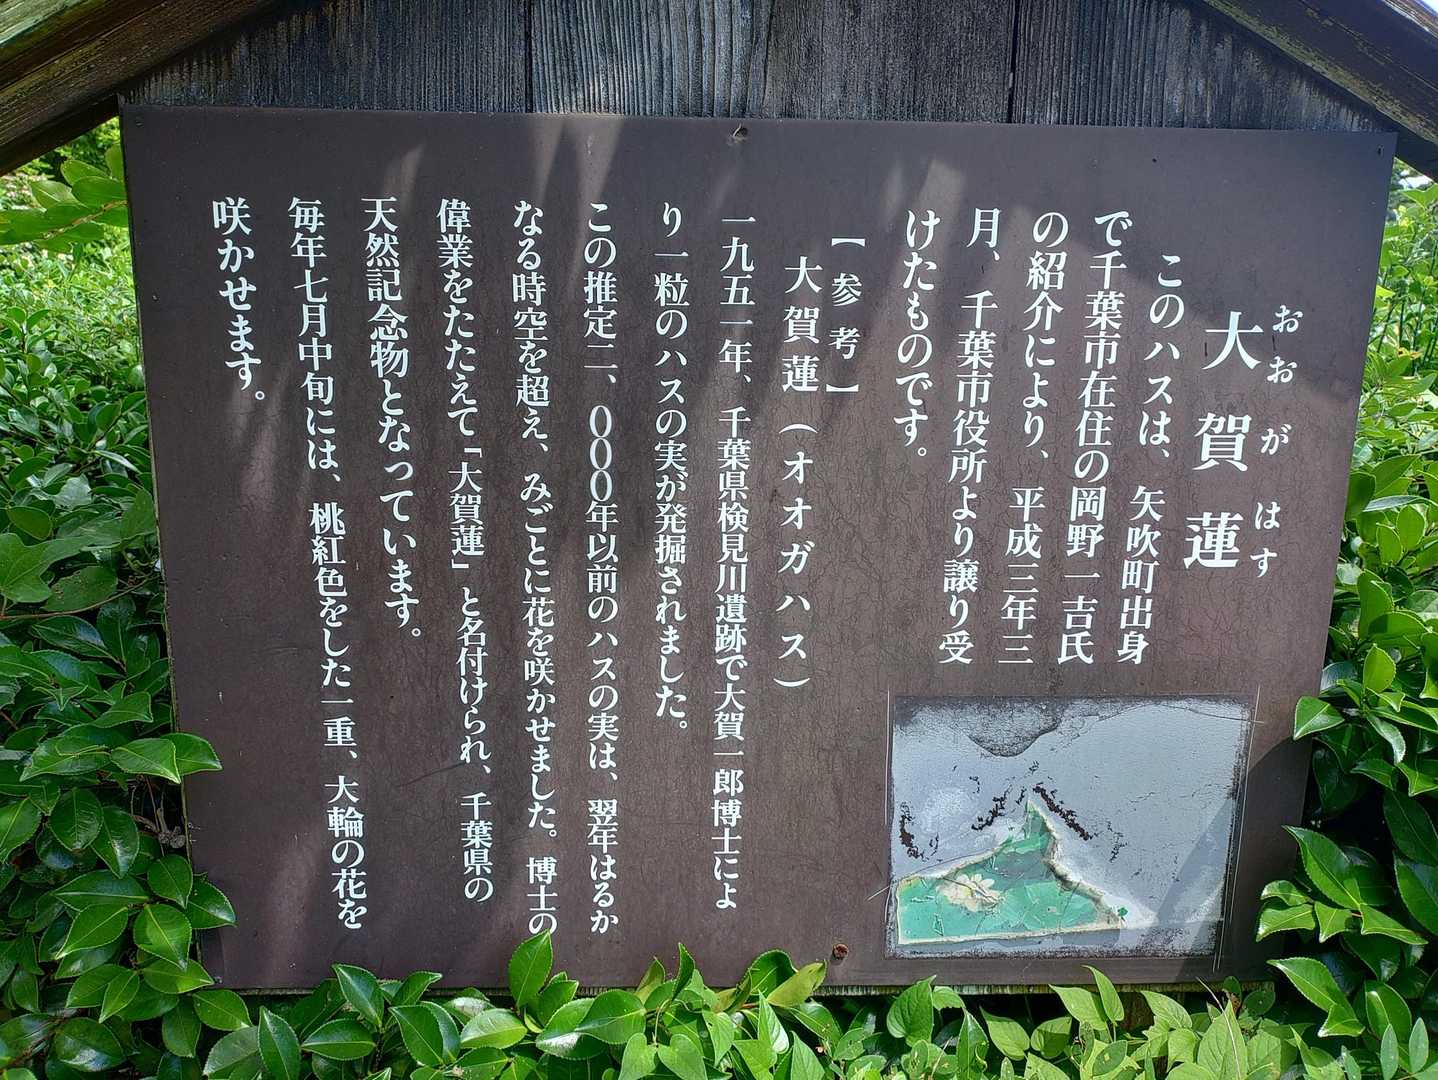 おおがはす
大賀蓮
このハスは、矢吹町出身
で千葉市在住の岡野一吉氏
の紹介により、平成三年三
月、千葉市役所より譲り受
けたものです。
【参考】
大賀蓮（オオガハス）
一九五一年、千葉県検見川遺跡で大賀一郎博士によ
り一粒のハスの実が発掘されました。
この推定二、〇〇〇年以前のハスの実は、翌年はるか
なる時空を超え、みごとに花を咲かせました。博士の
偉業をたたえて「大賀蓮」と名付けられ、千葉県の
天然記念物となっています。
毎年七月中旬には、桃紅色をした一重、大輪の花を
咲かせます。